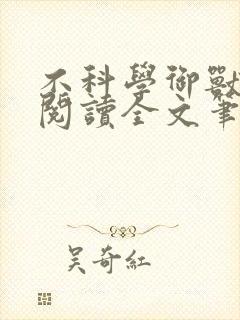 不科學御獸
閱讀全文筆
吴奇紅